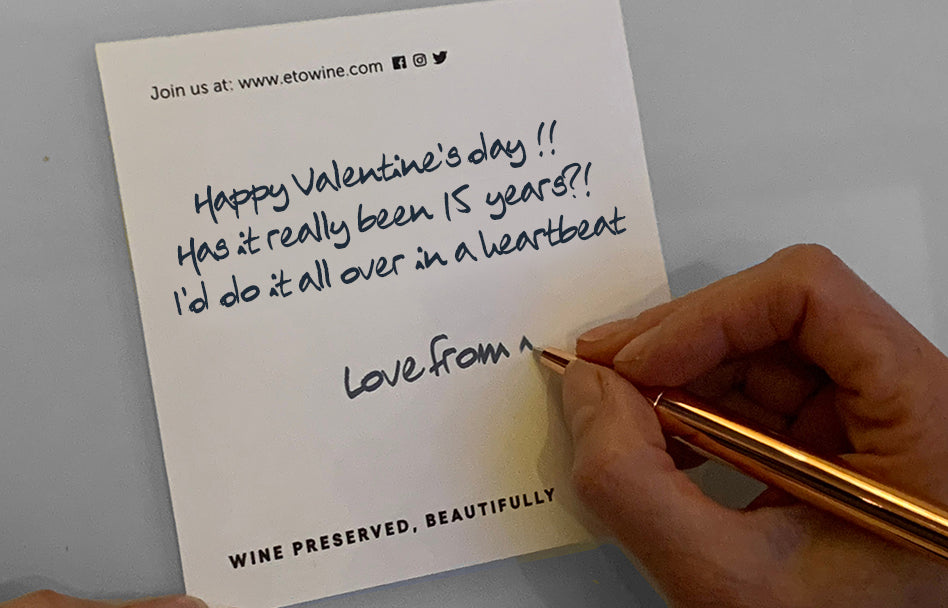 Join us at: www.etowine.com
Happy Valentine's day !!
Has it really been 15 years?!
I'd do it all over in a heartbeat
Love from
WINE PRESERVED, BEAUTIFULLY